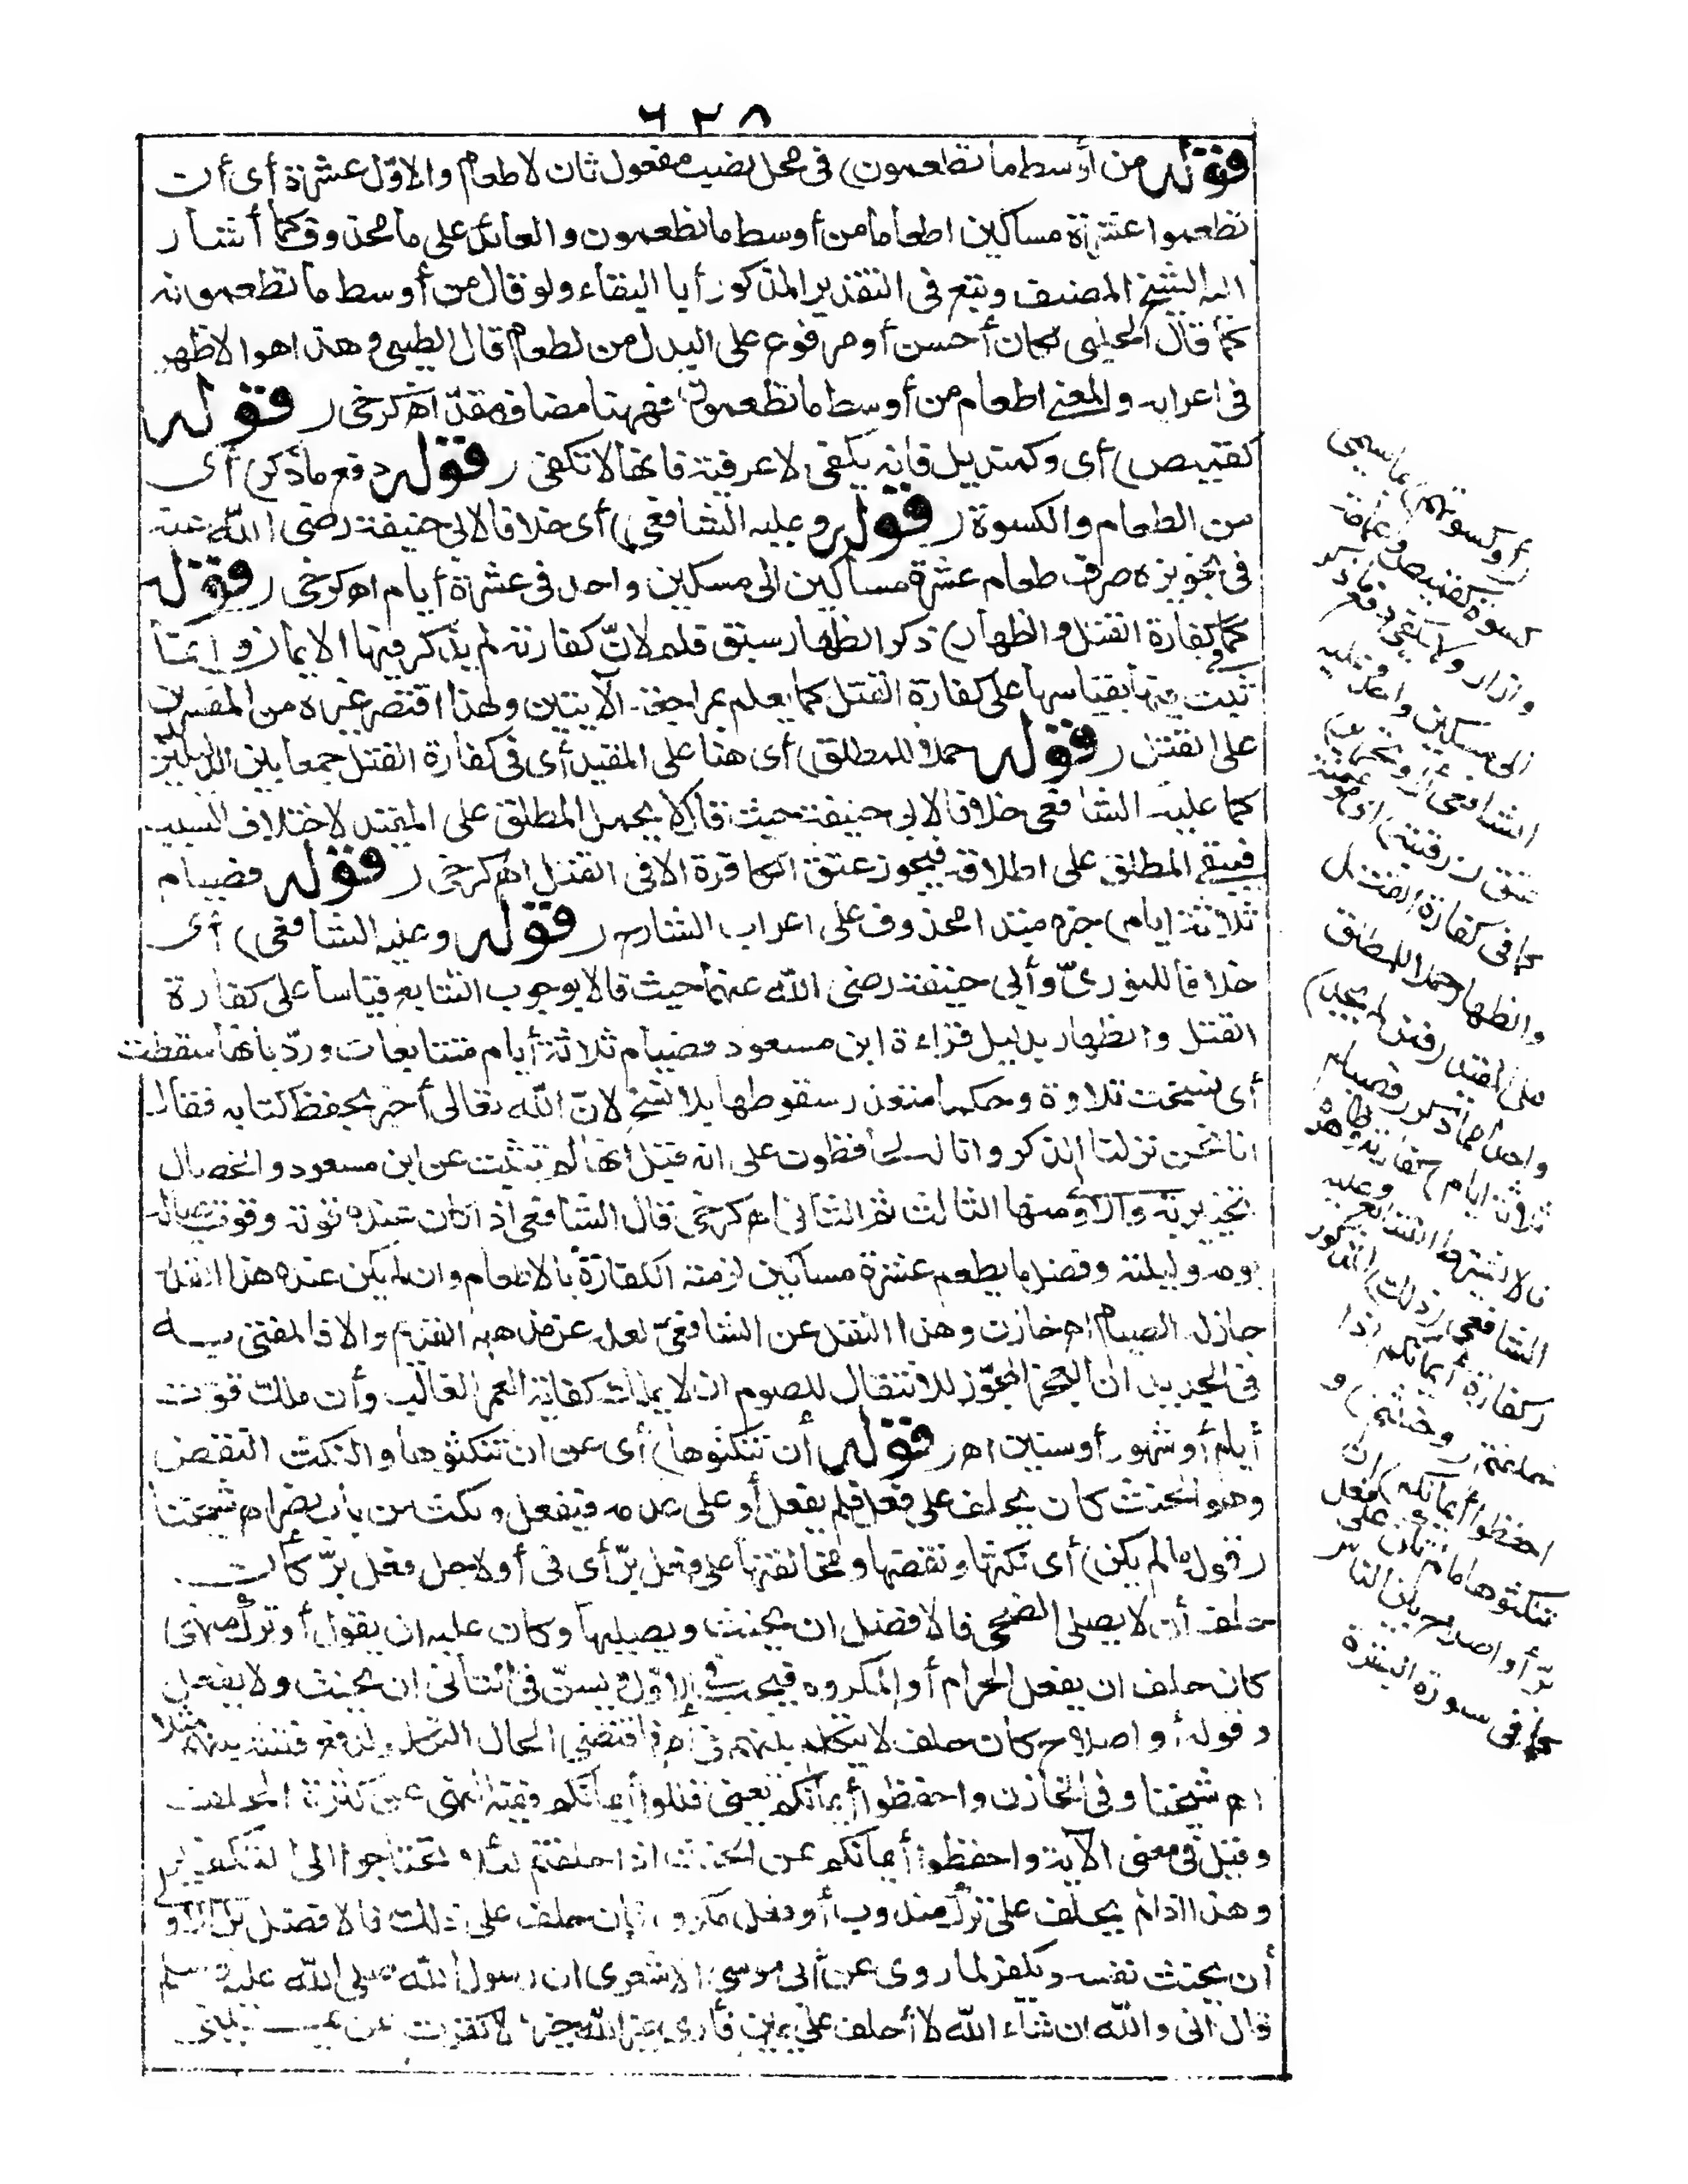 ٦٢٨
قوله من أوسط ما تطعمون) فى محل نصب مفعول ثان لاطعام والاوّل عشرة أى أن
تطعموا عشرة مساكين اطعاما من أوسط ما تطعمون والعائد على ما محذوف كما أشار
اليه الشيخ المصنف وتبع فى التقدير المذكور أبا البقاء ولو قال من أوسط ما تطعمونه
كما قال الحلبى لكان أحسن أو مرفوع على البدل من اطعام قال الطيبى وهذا هو الاظهر
فى اعرابه والمعنى اطعام من أوسط ما تطعمون فههنا مضاف مقدّر اهـ كرخى (قوله
كقميص) أى وكمنديل فانه يكفى لا عرقية فانها لا تكفى (قوله دفع ما ذكر) أى
من الطعام والكسوة (قوله وعليه الشافعى) أى خلافا لابى حنيفة رضى الله عنه
فى تجويزه صرف طعام عشرة مساكين الى مسكين واحد فى عشرة أيام اهـ كرخى (قوله
كما فى كفارة القتل والظهار) ذكر الظهار سبق قلم لانّ كفارته لم يذكر فيها الايمان وانما
ثبت فيها بقياسها على كفارة القتل كما يعلم بمراجعة الآيتين ولهذا اقتصر غيره من المفسرين
على القتل (قوله حملا للمطلق) أى هنا على المقيد أى فى كفارة القتل جمعا بين الدليلين
كما عليه الشافعى خلافا لابى حنيفة حيث قال لا يحمل المطلق على المقيد لاختلاف السبب
فيبقى المطلق على اطلاقه فيجوز عتق الكافرة الا فى القتل اهـ كرخى (قوله فصيام
ثلاثة ايام) خبره مبتدا محذوف على اعراب الشارح (قوله وعليه الشافعى) أى
خلافا للثورىّ وأبى حنيفة رضى الله عنهما حيث قالا بوجوب التتابع قياسا على كفارة
القتل والظهار بدليل قراءة ابن مسعود فصيام ثلاثة أيام متتابعات وردّ بأنها سقطت
أى نسخت تلاوة وحكما متعذر سقوطها بلا نسخ لانّ الله تعالى أخبر بحفظ كتابه فقال
انا نحن نزلنا الذكر وانا له لحافظون على انه قيل انها لم تثبت عن ابن مسعود والخصال
تخييرية والاولى منها الثالث ثم الثانى اهـ كرخى قال الشافعى اذا كان عنده قوته وقوت عياله
يومه وليلته وفضل ما يطعم عشرة مساكين لزمته الكفارة بالاطعام وان لم يكن عنده هذا القدر
جاز له الصيام اهـ خازن وهذا النقل عن الشافعىّ لعله عن مذهبه القديم والا فالمفتى به
فى الجديد ان العجز المجوّز للانتقال للصوم ان لا يملك كفاية العمر الغالب وأن ملك قوت
أيام أو شهور أو سنين اهـ (قوله أن تنكثوها) أى عن ان تنكثوها والنكث النقض
وهو الحنث كان يحلف على فعل فلم يفعل أو على عدمه فيفعل ونكث من باب نصر اهـ شيخنا
(قوله ما لم يكن) أى نكثها ونقضها ومخالفتها على فعل برّ أى فى أو لاجل فعل برّ كأن
حلف أن لا يصلى الضحى فالافضل ان يحنث ويصليها وكان عليه ان يقول أو ترك منهى
كان حلف ان يفعل الحرام أو المكروه فيجب فى الاوّل ويسنّ فى الثانى ان يحنث ولا يفعل
(قوله أو اصلاح كأن حلف لا يتكلم بينهم فى أمر فاقتضى الحال التكلم لدفع فتنة بينهم مثلا
اهـ شيخنا وفى الخازن واحفظوا أيمانكم يعنى قللوا أيمانكم ففيه النهى عن كثرة الحلف
وقيل فى معنى الآية واحفظوا أيمانكم عن الحنث اذا حلفتم لئلا تحتاجوا الى التكفير
وهذا اذا لم يحلف على ترك مندوب أو فعل مكروه فإن حلف على ذلك فالافضل
أن يحنث نفسه ويكفر لما روى عن أبى موسى الاشعرى ان رسول الله صلى الله عليه وسلم
قال انى والله ان شاء الله لا أحلف على يمين فأرى غيرها خيرا الا كفرت عن يمينى
(أو كسوتهم) بما يسمى
كسوة كقميص وعمامة
وازار ولا يكفى دفع ما ذكر
الى مسكين واحد وعليه
الشافعى (أو تحرير)
عتق (رقبة) أى مؤمنة
كما فى كفارة القتل
والظهار حملا للمطلق
على المقيد (فمن لم يجد)
واحدا مما ذكر (فصيام
ثلاثة ايام) كفارته وظاهره
انه لا يشترط التتابع وعليه
الشافعى (ذلك) المذكور
(كفارة أيمانكم اذا
حلفتم) وحنثتم (و
احفظوا أيمانكم) أن
تنكثوها ما لم تكن على فعل
برّ أو اصلاح بين الناس
كما فى سورة البقرة